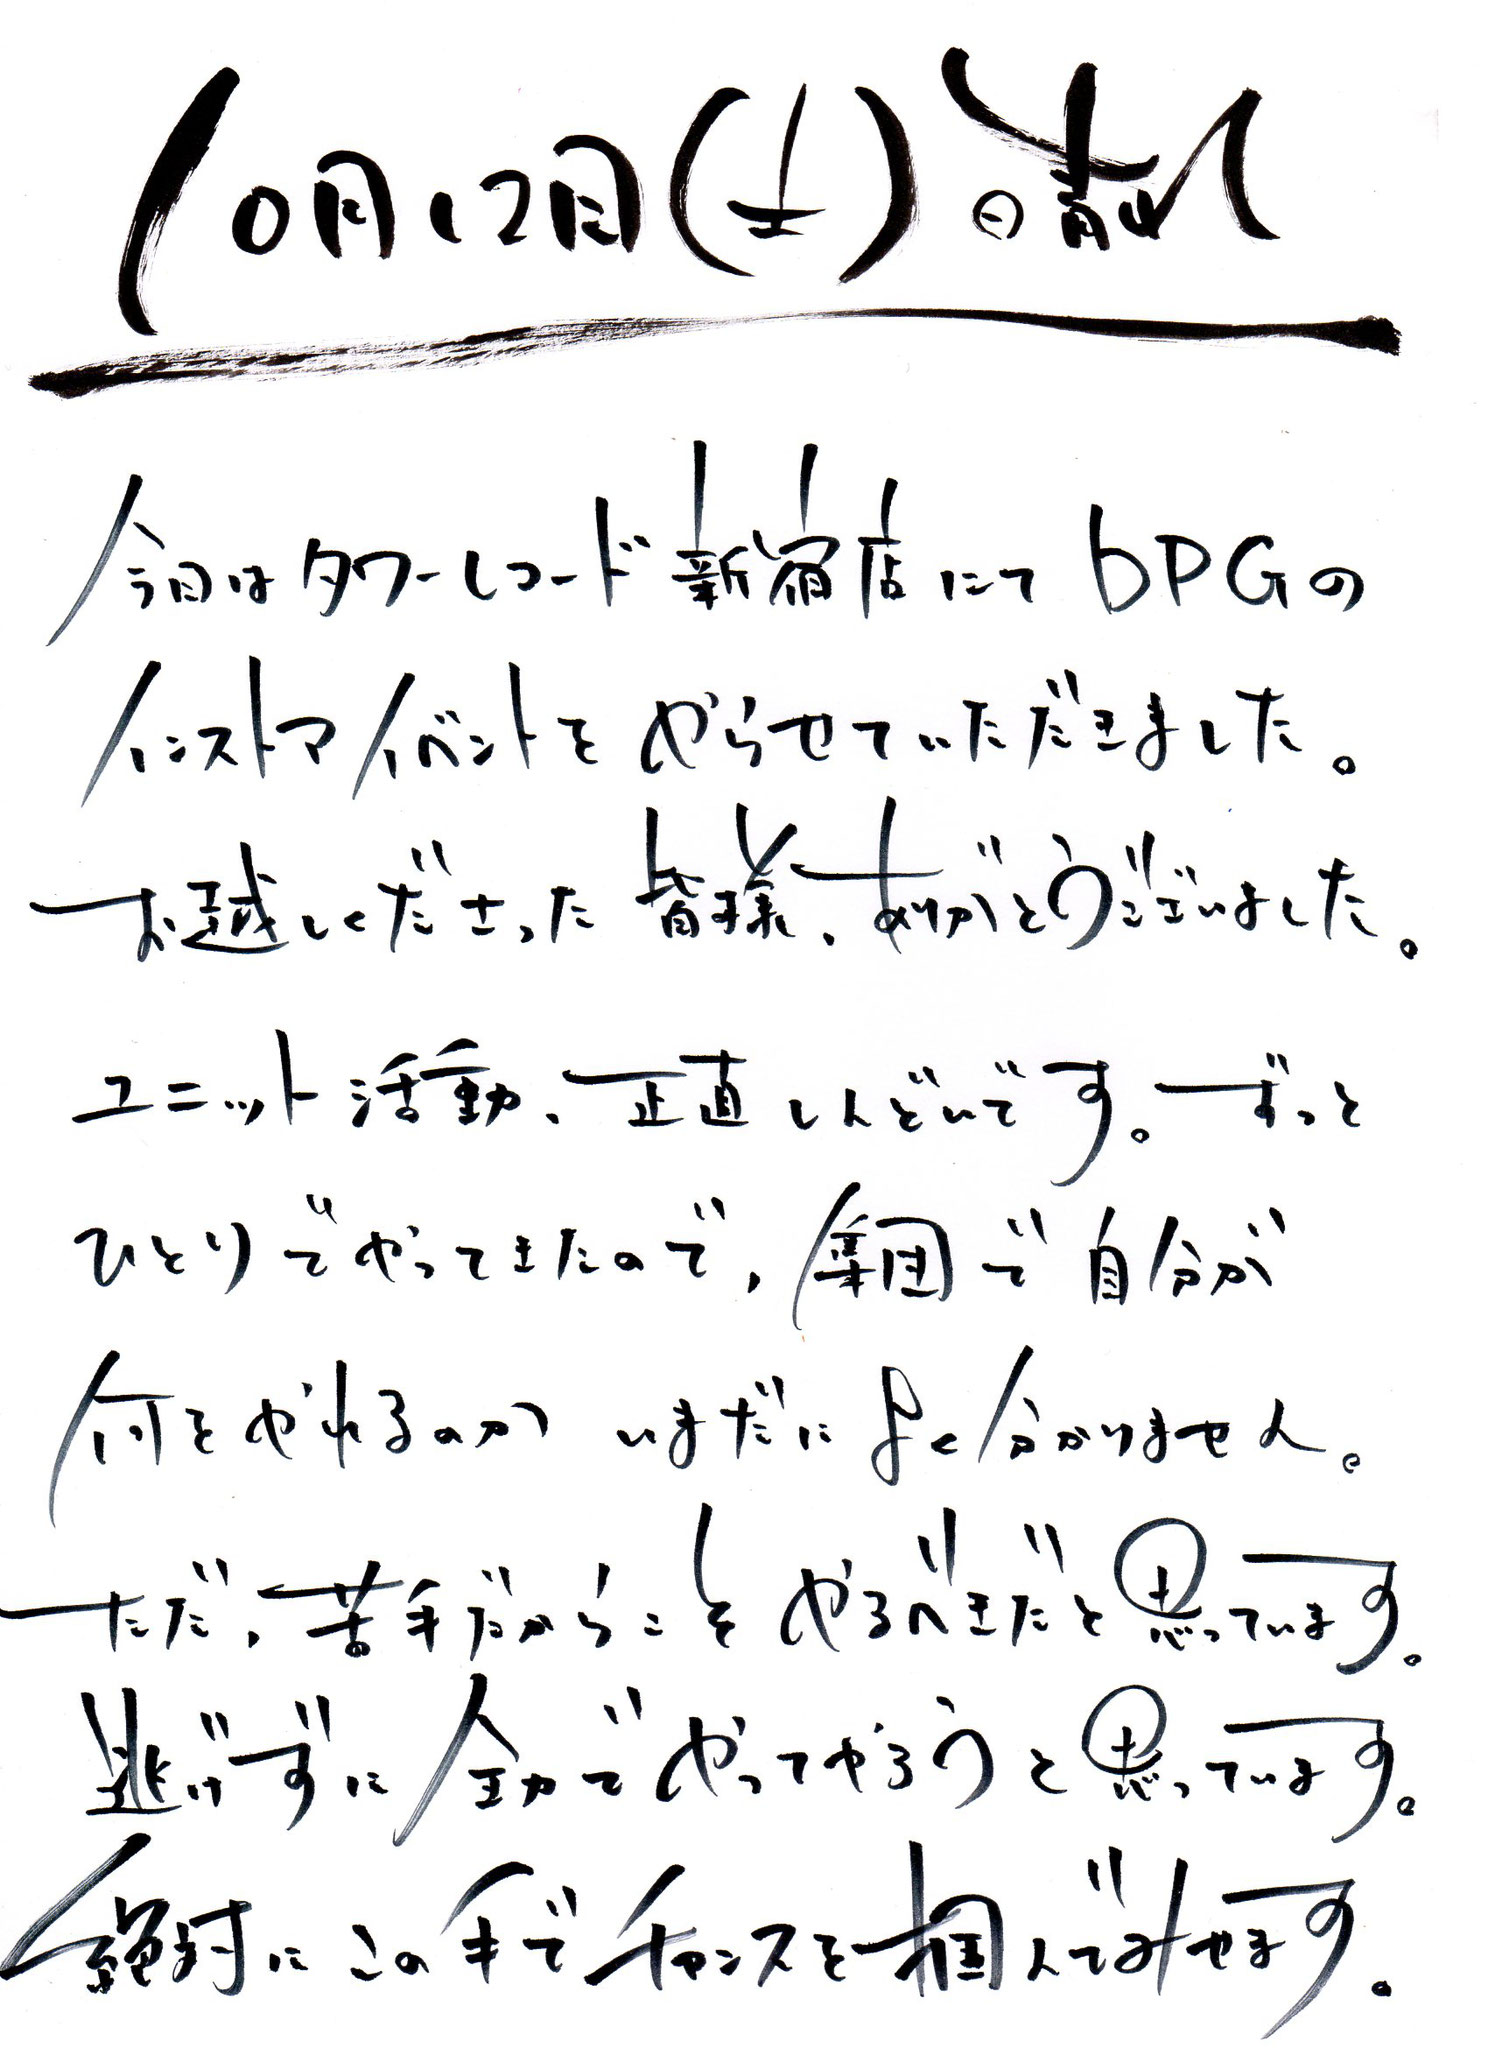 10月12日(土)の龍
今日はタワーレコード新宿店にてbPGの
インストアイベントをやらせていただきました。
お越しくださった皆様、ありがとうございました。
ユニット活動、正直しんどいです。ずっと
ひとりでやってきたので、集団で自分が
何をやれるのか いまだによく分かりません。
ただ、苦手だからこそやるべきだと思っています。
逃げずに全力でやってやろうと思っています。
絶対にこの手でチャンスを掴んでみせます。